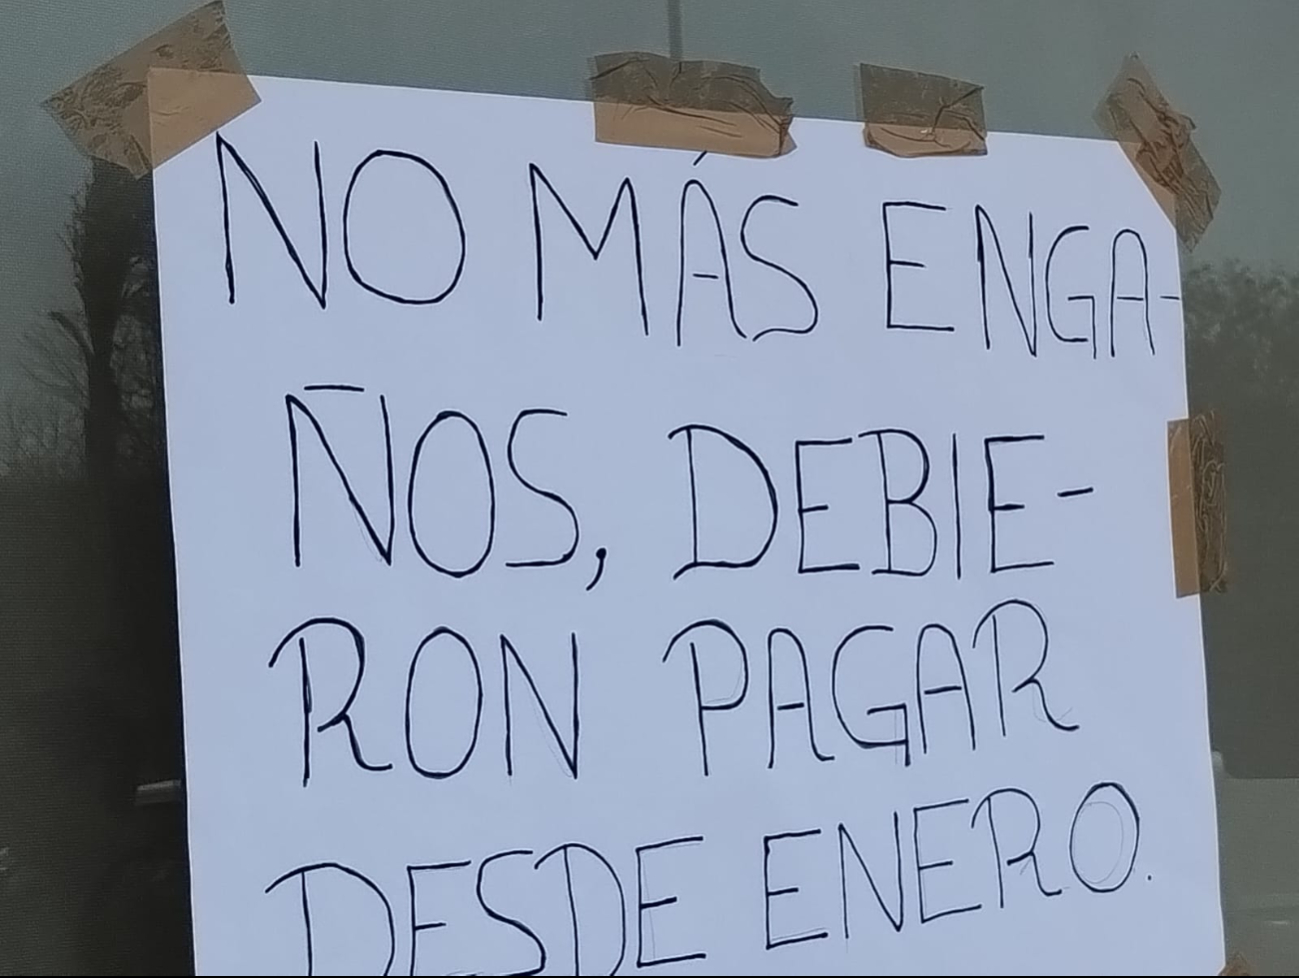 NO MÁS ENGA-
ÑOS, DEBIE-
RON PAGAR
DESDE ENERO.